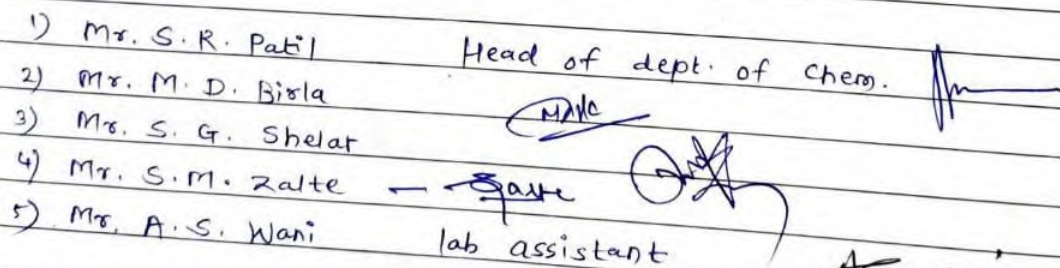 1) Mr. S. R. Patil Head of dept. of Chem.
2) Mr. M. D. Birla
3) Mr. S. G. Shelar
4) Mr. S. M. Zalte -
5) Mr. A. S. Wani lab assistant